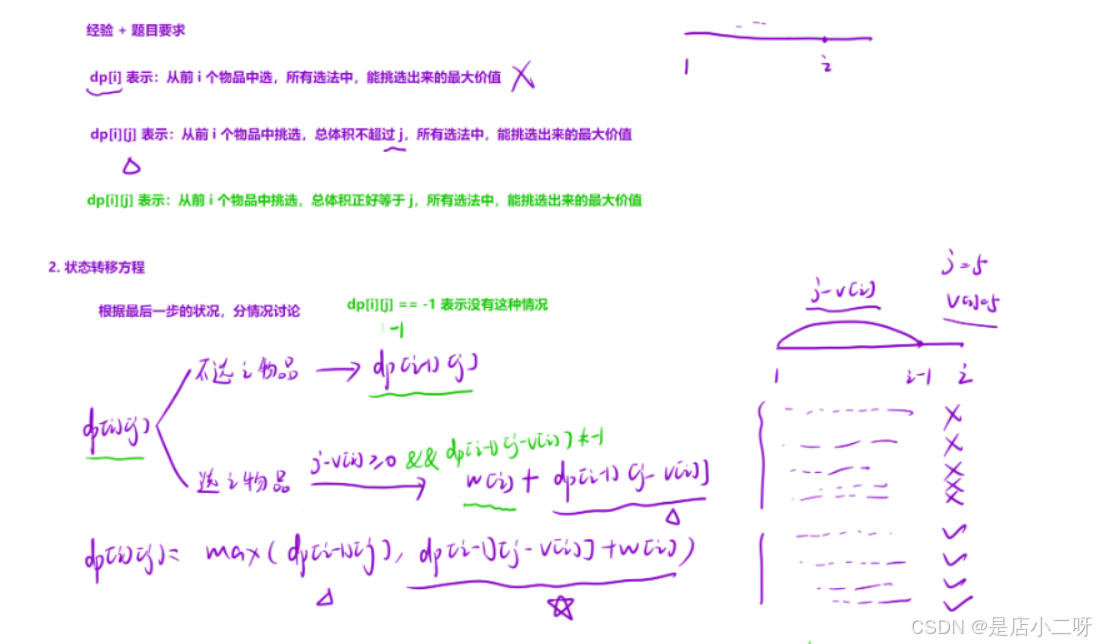 经验 + 题目要求
dp[i] 表示：从前 i 个物品中选，所有选法中，能挑选出来的最大价值
1 i
dp[i][j] 表示：从前 i 个物品中挑选，总体积不超过 j，所有选法中，能挑选出来的最大价值
dp[i][j] 表示：从前 i 个物品中挑选，总体积正好等于 j，所有选法中，能挑选出来的最大价值
2. 状态转移方程
根据最后一步的状况，分情况讨论
dp[i][j] == -1 表示没有这种情况
-1
不选 i 物品 → dp[i-1][j]
dp[i][j]
选 i 物品
j-v[i] ≥ 0 && dp[i-1][j-v[i]] != -1
w[i] + dp[i-1][j-v[i]]
dp[i][j] = max(dp[i-1][j], dp[i-1][j-v[i]]+w[i])
j=5
v[i]=5
j-v[i]
1 i-1 i
CSDN @是店小二呀